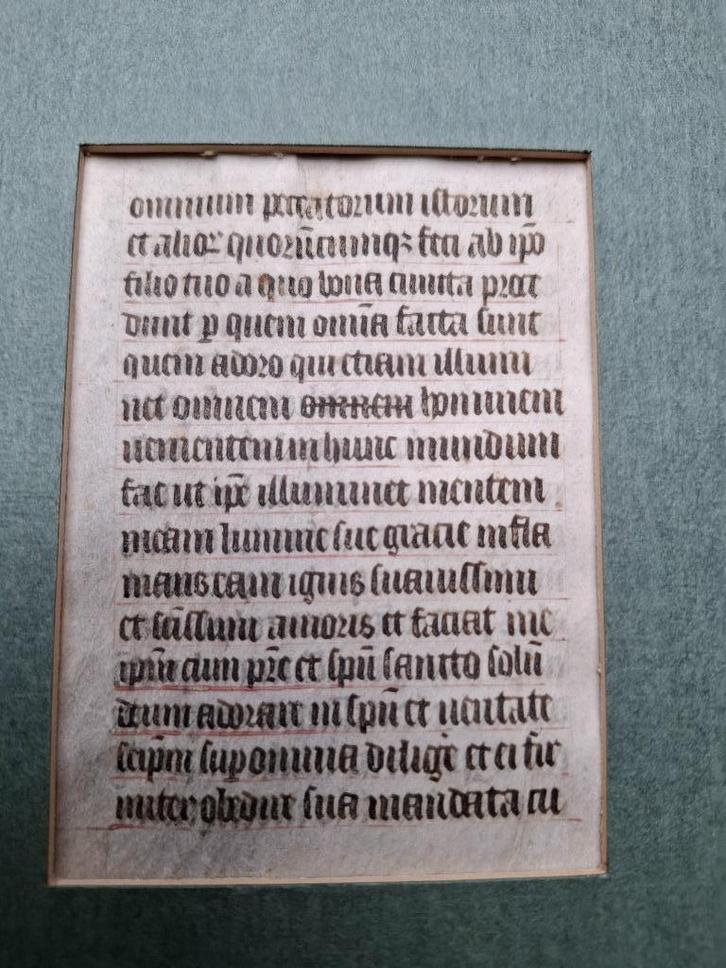 omnium peccatorum istorum
et alioꝝ quorūcumqꝫ feci ab ip̄o
filio tuo a quo bona cuncta proce
dunt ꝑ quem omīa facta sunt
quem adoro qui etiam illumi
net omnem omnem hominem
uenientem in hunc mundum
fac ut ip̄e illuminet mentem
meam lumine sue gracie infla
mans eam ignis suauissimi
et sāċtissimi amoris et faciat me
ip̄m cum pr̄e et sp̄u sancto solū
deum adorare in sp̄u et ueritate
seip̄m suꝑ omnia diligere et ei fir
miter obedire sua mandata cu